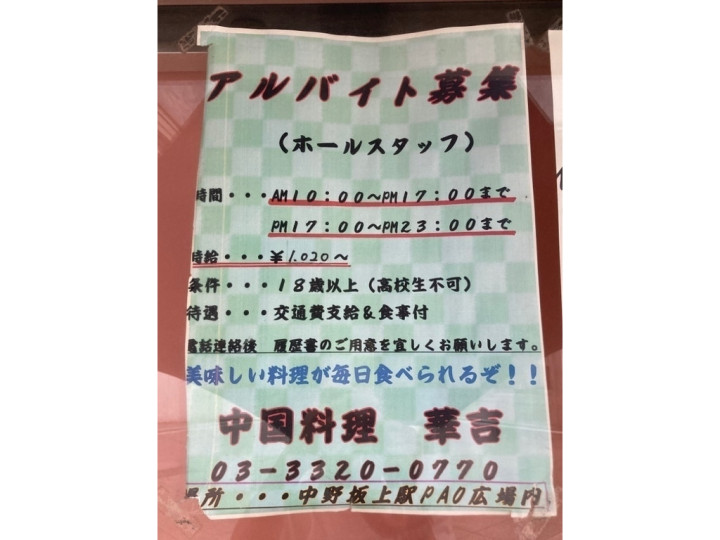 アルバイト募集
（ホールスタッフ）
時間・・・AM10：00～PM17：00まで
PM17：00～PM23：00まで
時給・・・￥1,020～
条件・・・18歳以上（高校生不可）
待遇・・・交通費支給＆食事付
電話連絡後　履歴書のご用意を宜しくお願いします。
美味しい料理が毎日食べられるぞ！！
中国料理　華吉
03－3320－0770
場所・・・中野坂上駅PAO広場内